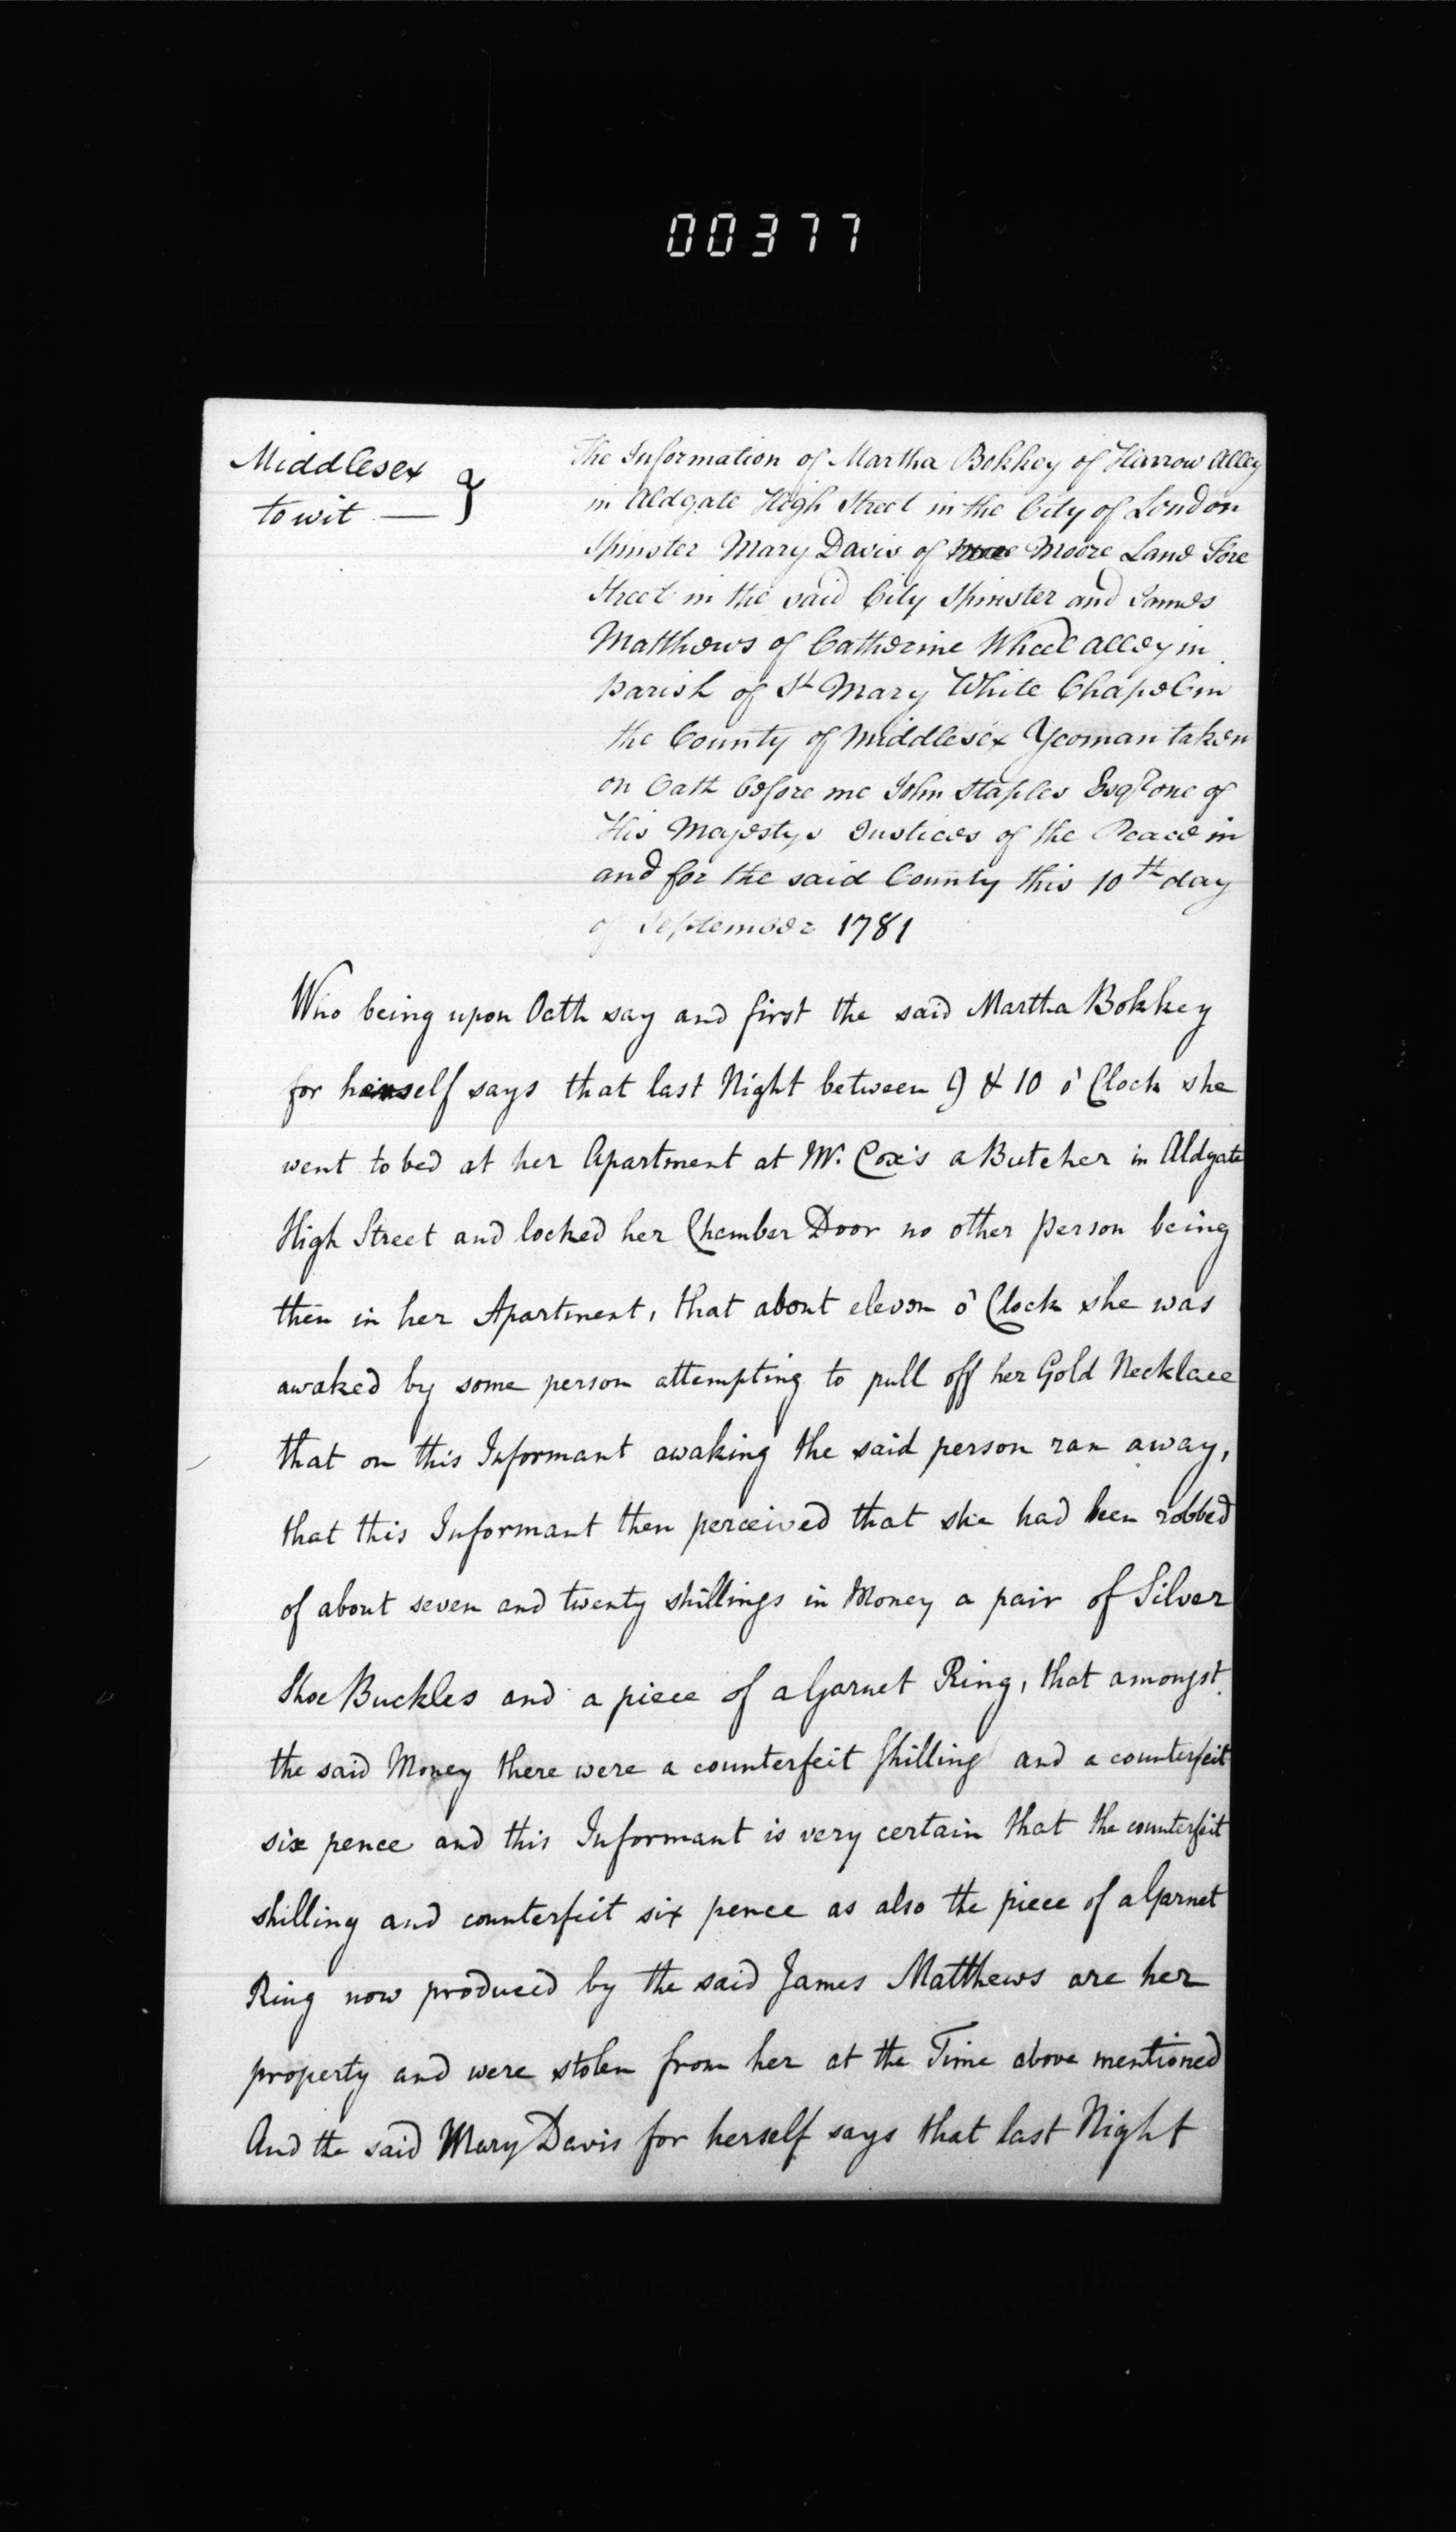 00377
Middlesex
to wit
The Information of Martha Bokkey of Harrow Alley
in Aldgate High Street in the City of London
Spinster Mary Davis of Moore Lane Fore
Street in the said City Spinster and James
Matthews of Catherine Wheel Alley in
parish of St Mary White Chapel in
the County of Middlesex Yeoman taken
on Oath before me John Staples Esqr one of
His Majestys Justices of the Peace in
and for the said County this 10th day
of September 1781
Who being upon Oath say and first the said Martha Bokkey
for herself says that last Night between 9 & 10 o' Clock she
went to bed at her Apartment at Mr. Cox's a Butcher in Aldgate
High Street and locked her Chamber Door no other person being
then in her Apartment, that about eleven o' Clock she was
awaked by some person attempting to pull off her Gold Necklace
that on this Informant awaking the said person ran away,
that this Informant then perceived that she had been robbed
of about seven and twenty shillings in Money a pair of Silver
Shoe Buckles and a piece of a Garnet Ring, that amongst
the said Money there were a counterfeit shilling and a counterfeit
six pence and this Informant is very certain that the counterfeit
shilling and counterfeit six pence as also the piece of a Garnet
Ring now produced by the said James Matthews are her
property and were stolen from her at the Time above mentioned
And the said Mary Davis for herself says that last Night